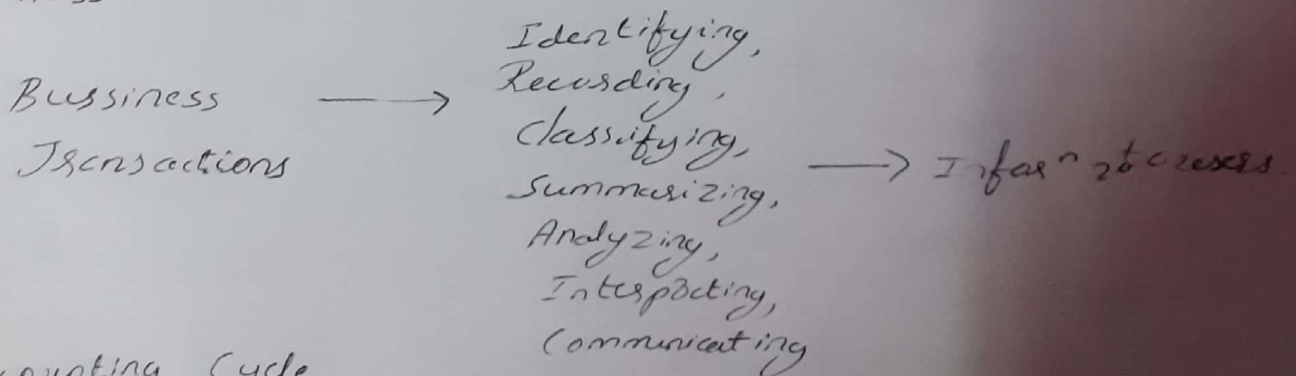 Bussiness
Transactions
→
Identifying,
Recording,
Classifying,
Summarizing,
Analyzing,
Interpreting,
Communicating
→
Inforⁿ to users.
ounting Cycle